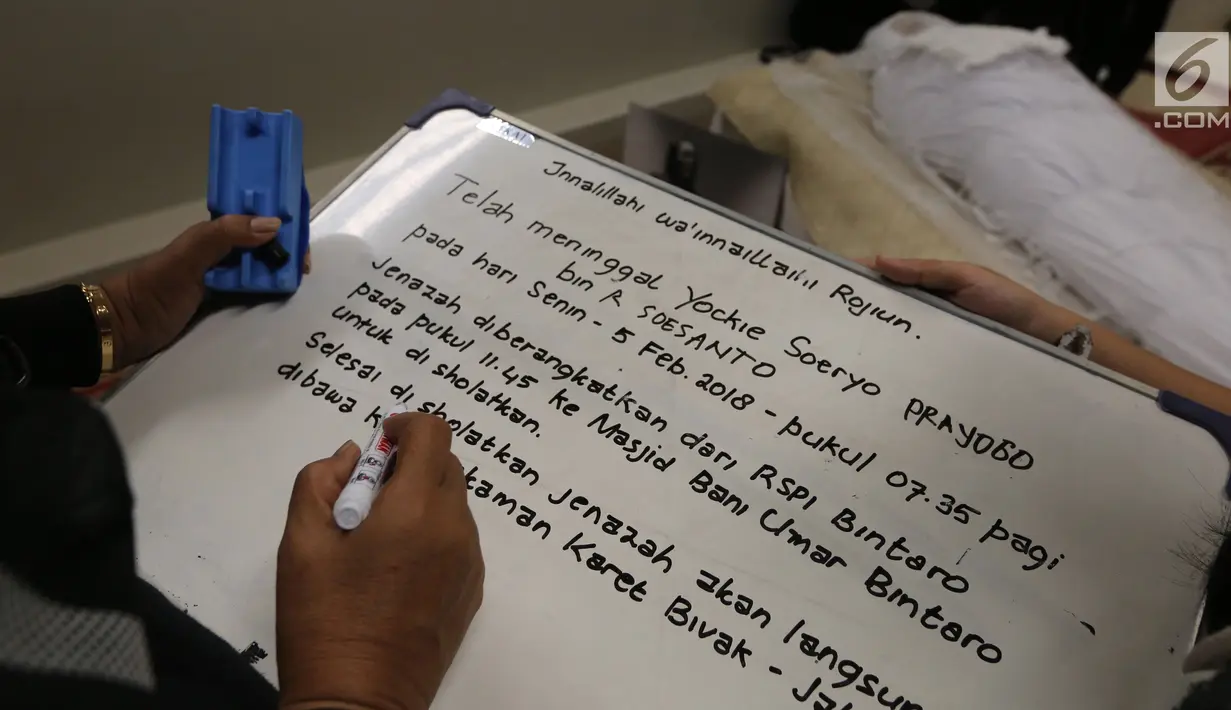 Innalillahi wa'innaillaihi Rojiun.
Telah meninggal Yockie Soeryo PRAYOGO
bin R SOESANTO
pada hari Senin - 5 Feb. 2018 - pukul 07.35 pagi
Jenazah diberangkatkan dari RSPI Bintaro
pada pukul 11.45 ke Masjid Bani Umar Bintaro
untuk di sholatkan.
Selesai di sholatkan jenazah akan langsu
dibawa k kaman Karet Bivak - Ja
6
.COM